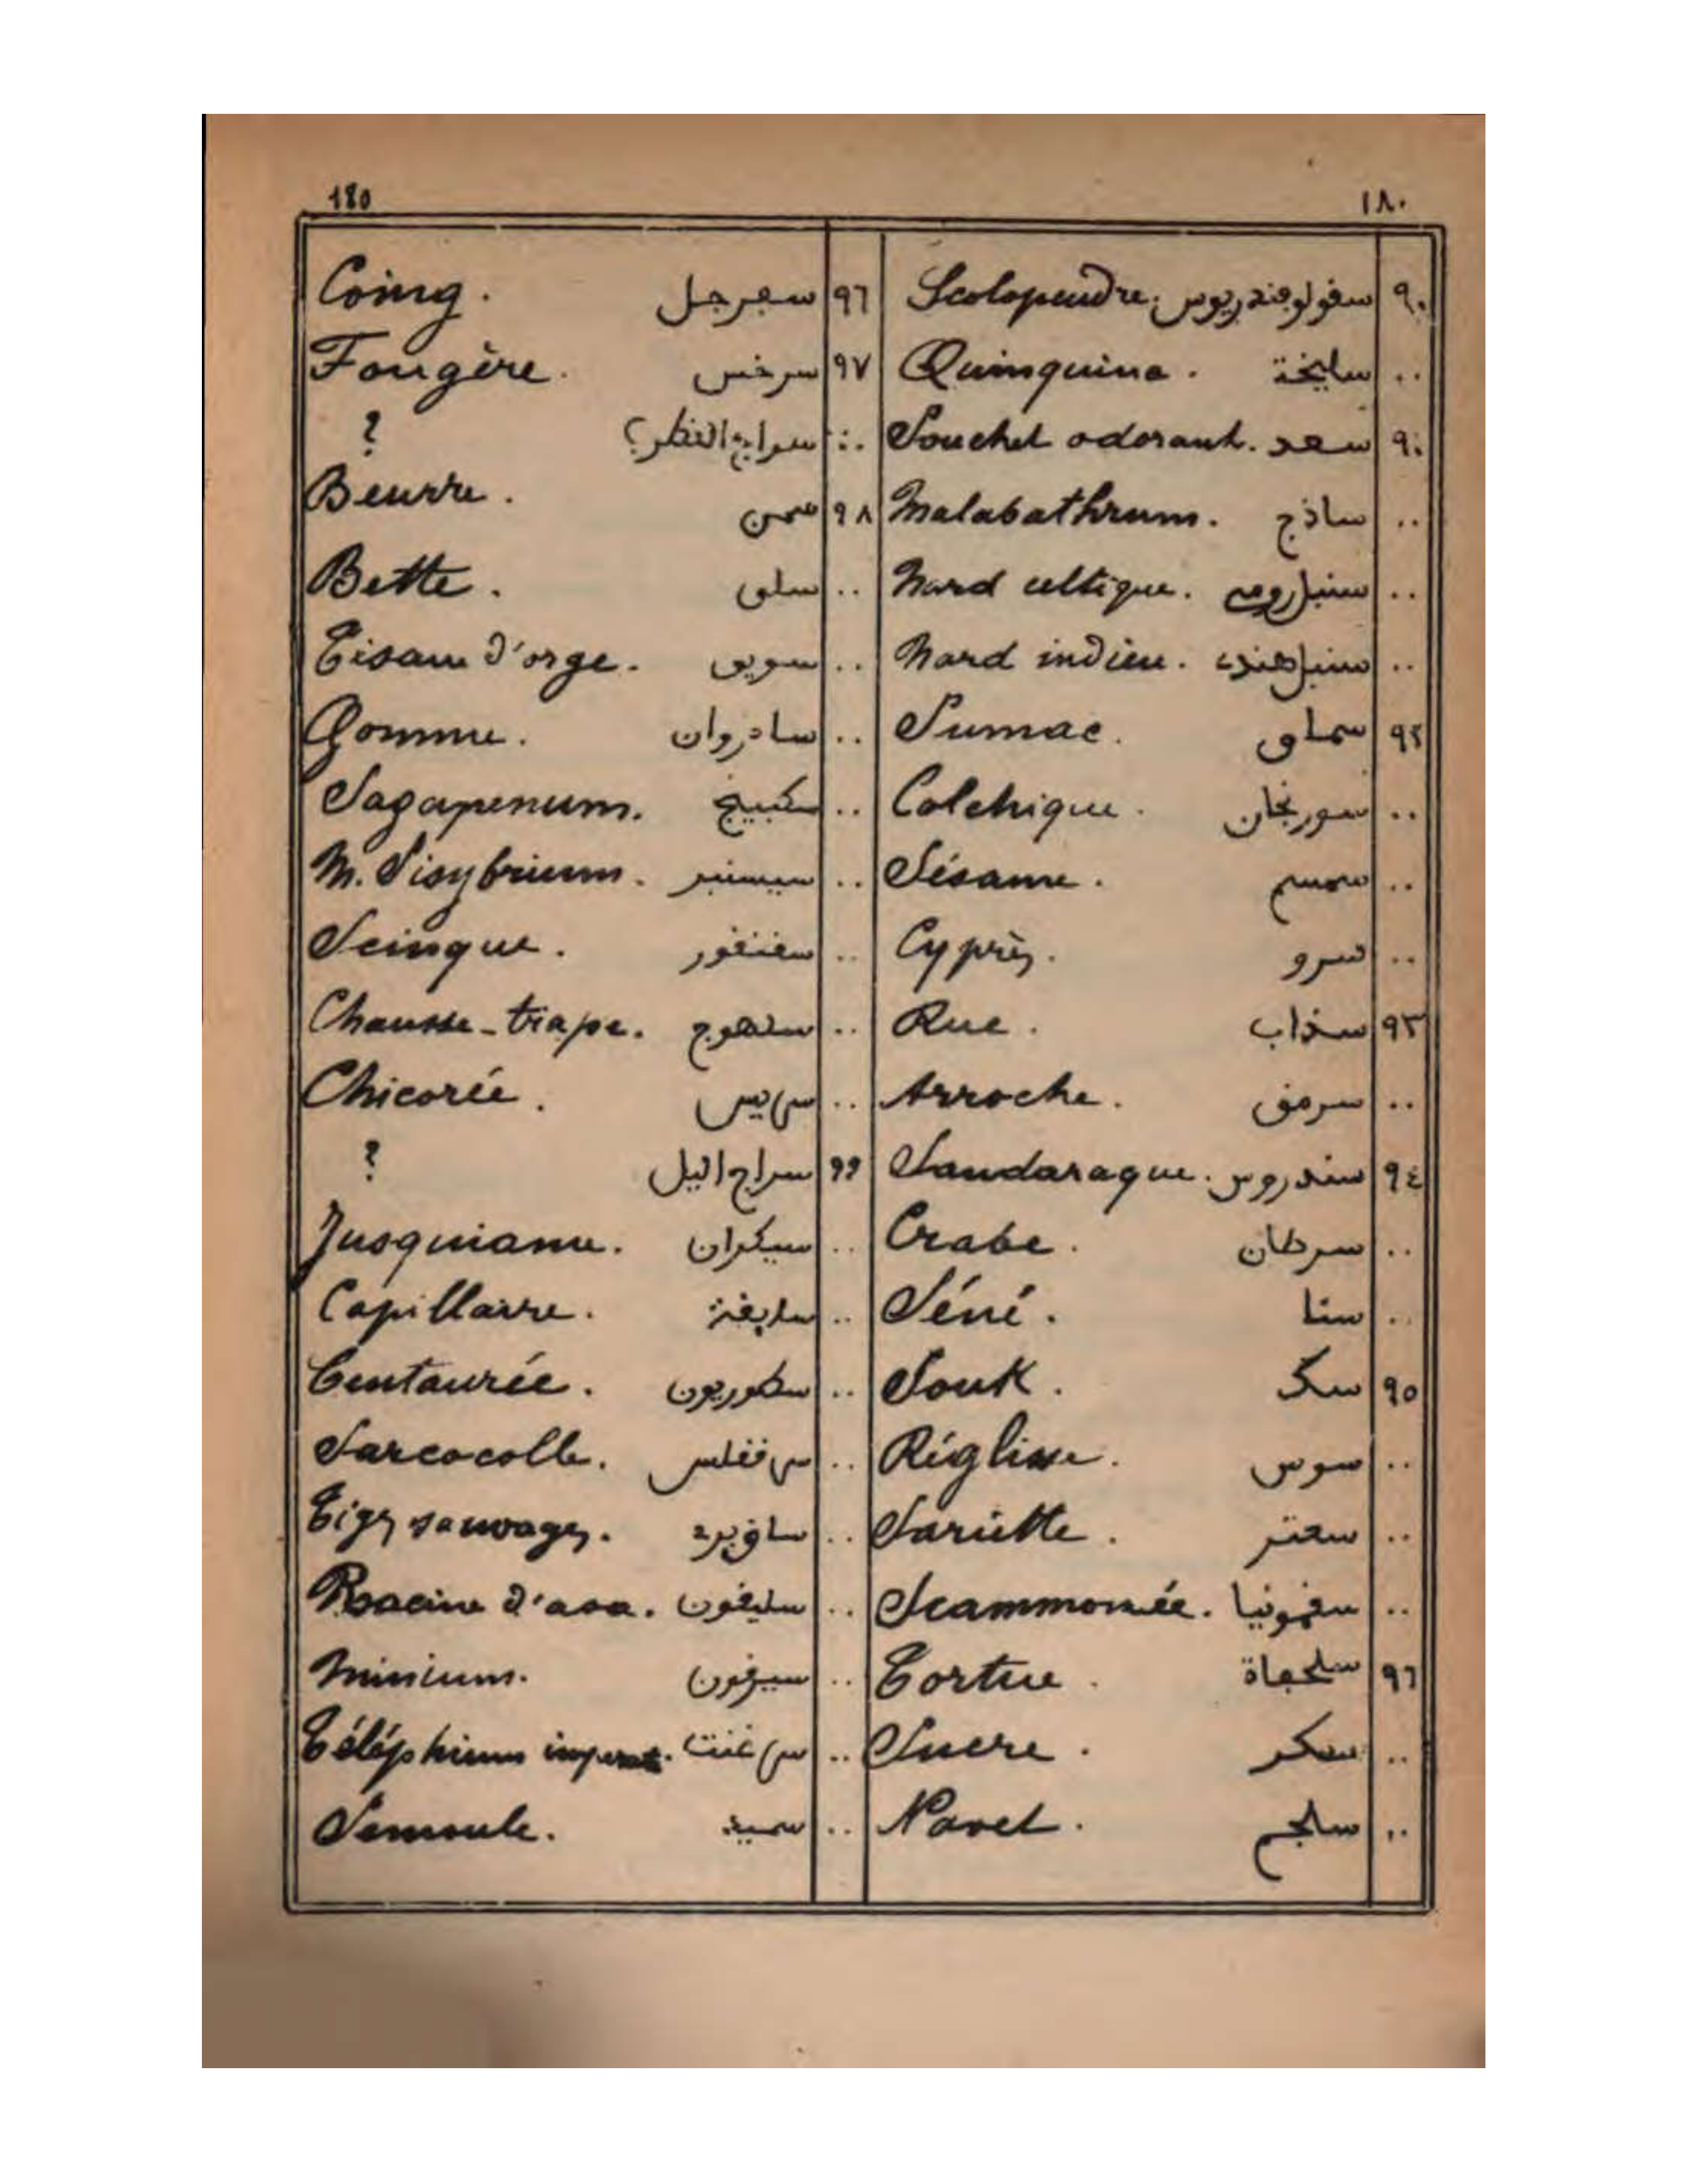 180 ١٨٠
٩٠ سفولوفندريوس Scolopendre.
.. سليخة Quinquina.
٩٠ سعد Souchet odorant.
.. ساذج Malabathrum.
.. سنبل رومي Nard celtique.
.. سنبل هندي Nard indien.
٩٢ سماق Sumac.
.. سورنجان Colchique.
.. سمسم Sésame.
.. سرو Cyprès.
٩٣ سذاب Rue.
.. سرمق Arroche.
٩٤ سندروس Sandaraque.
.. سرطان Crabe.
.. سنا Séné.
٩٥ سك Souk.
.. سوس Réglisse.
.. سعتر Sariette.
.. سقمونيا Scammonée.
٩٦ سلحفاة Tortue.
.. سكر Sucre.
.. سلجم Navet.
٩٦ سفرجل Coing.
٩٧ سرخس Fougère.
.. سراج القطر؟ ?
٩٨ سمن Beurre.
.. سلق Bette.
.. سويق Tisane d'orge.
.. سادروان Gomme.
.. سكبينج Sagapenum.
.. سيسنبر M. Sisybrium.
.. سقنقور Scinque.
.. Chausse-trape.
.. سريس Chicorée.
٩٩ سراج اليل ?
.. سيكران Jusquiame.
.. Capillaire.
.. سطوريون Centaurée.
.. Sarcocolle.
.. Tiges sauvages.
.. سليقون Racine d'asa.
.. سيرقون Minium.
.. سرغنت Téléphium imperat.
.. سميد Semoule.